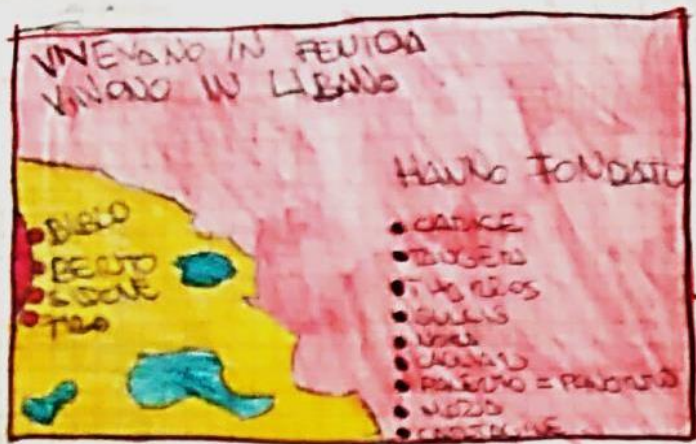 VIVEVANO IN FENICIA
VIVONO IN LIBANO
HANNO FONDATO
BIBLO
BERITO
SIDONE
TIRO
CADICE
TANGERI
THARROS
SULCIS
NORA
CAGLIARI
PALERMO = PANORMO
MOZIA
CARTAGINE